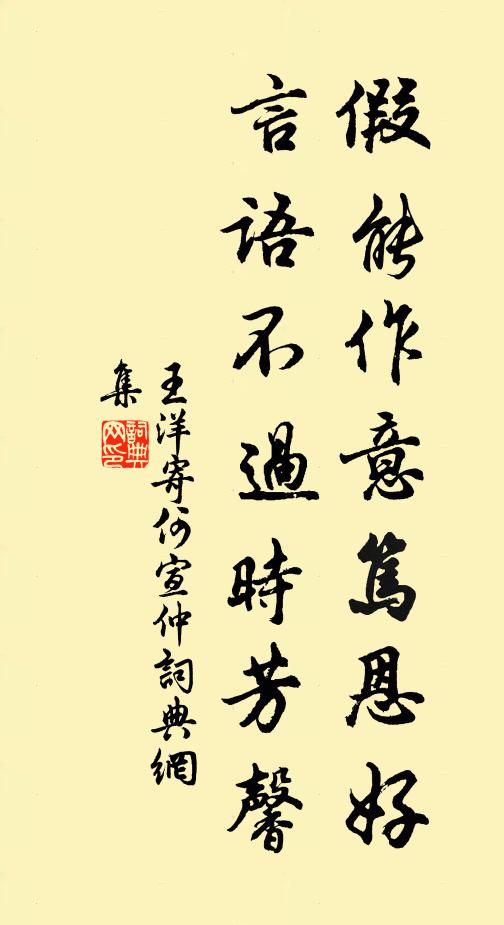 假能作意篤恩好
言語不過時芳馨
王洋寄何宣仲詞典網
集
詞典
网印